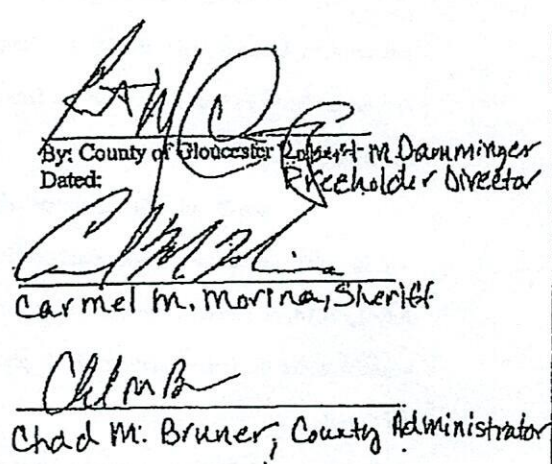 By: County of Gloucester Robert M. Damminger
Dated: Freeholder Director
Carmel M. Morina, Sheriff
Chad M. Bruner, County Administrator